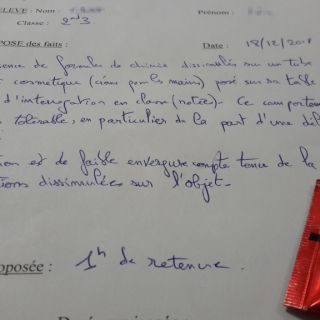 ELEVE : Nom :
Prénom :
Classe : 2nd 3
POSE des faits :
Date : 18/12/2018
ence de formules de chimie dissimulées sur un tube
cosmétique (crème pour les mains) posé sur sa table
d'interrogation en classe (notée). Ce comportement
tolérable, en particulier de la part d'une dél
ion est de faible envergure compte tenu de la
tions dissimulées sur l'objet.
oposée :
1h de retenue.